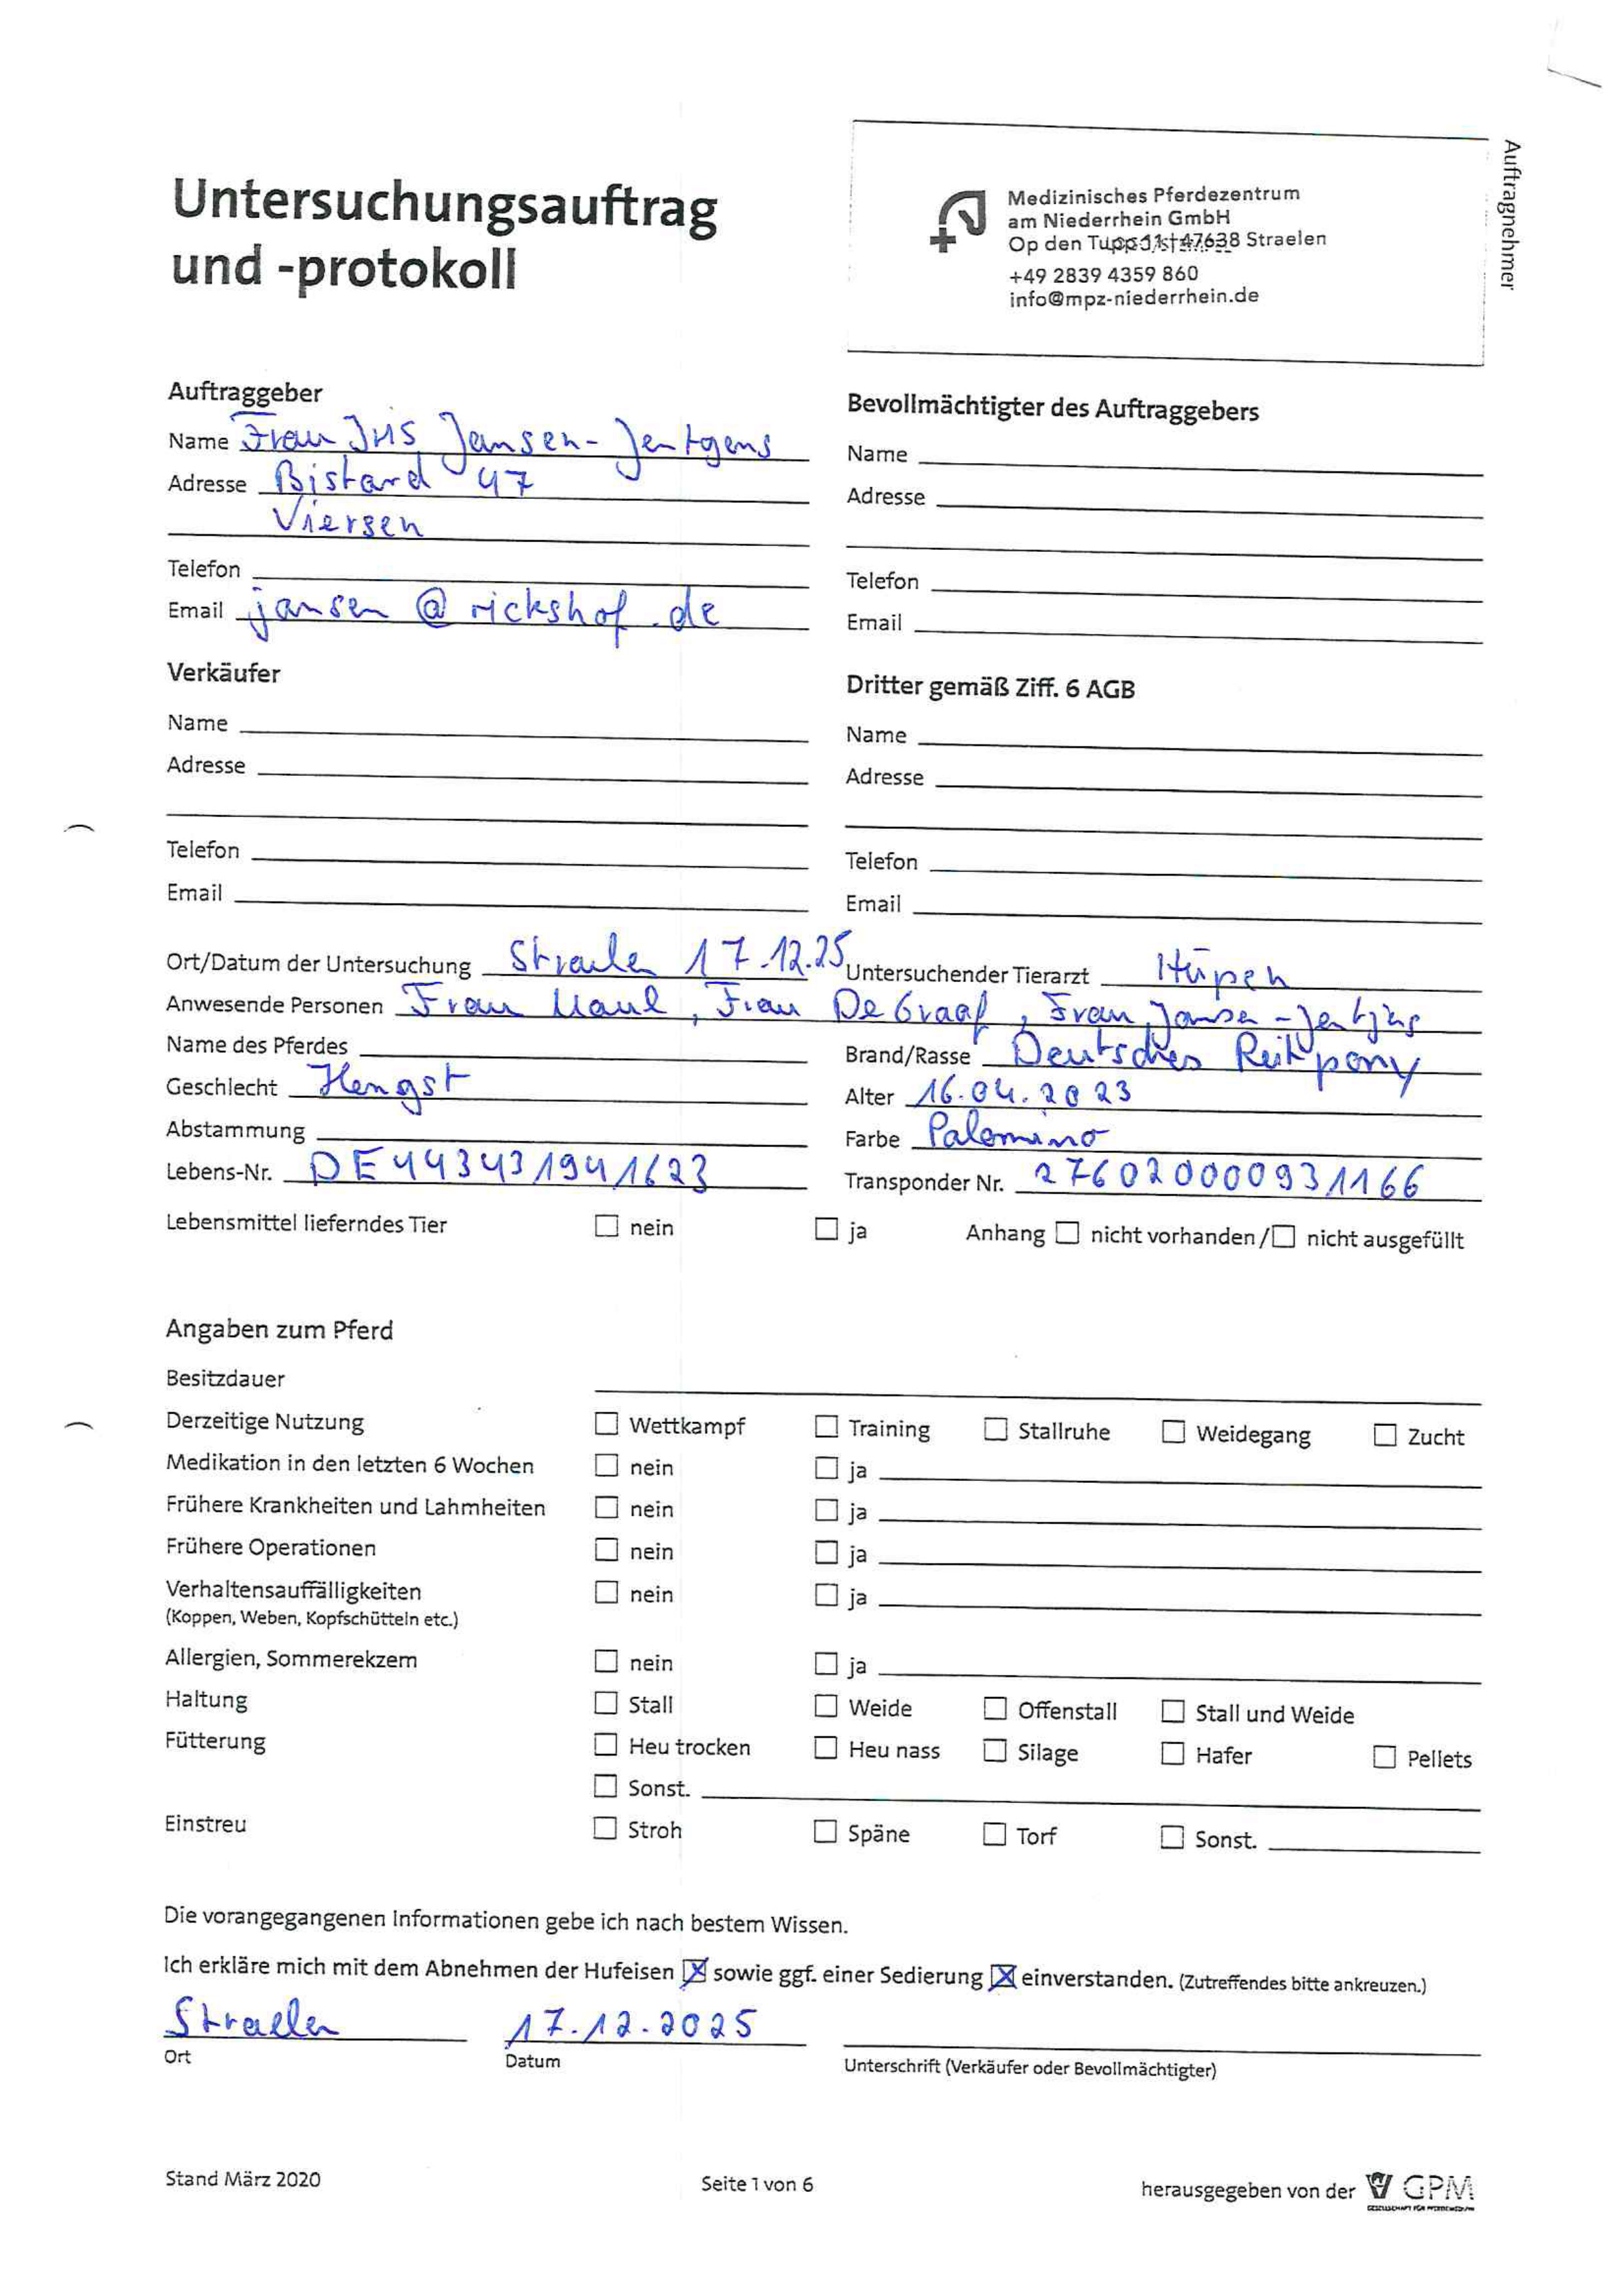 Untersuchungsauftrag
und -protokoll
Medizinisches Pferdezentrum
am Niederrhein GmbH
Op den Tupp 11 | 47638 Straelen
+49 2839 4359 860
info@mpz-niederrhein.de
Auftragnehmer
Auftraggeber
Name Frau Iris Jansen-Jentgens
Adresse Bistard 47
Viersen
Telefon
Email jansen@rickshof.de
Bevollmächtigter des Auftraggebers
Name
Adresse
Telefon
Email
Verkäufer
Name
Adresse
Telefon
Email
Dritter gemäß Ziff. 6 AGB
Name
Adresse
Telefon
Email
Ort/Datum der Untersuchung Straelen 17.12.25 Untersuchender Tierarzt Hüpen
Anwesende Personen Frau Maul, Frau De Graaf, Frau Jansen-Jentjens
Name des Pferdes Brand/Rasse Deutsches Reitpony
Geschlecht Hengst Alter 16.04.2023
Abstammung Farbe Palomino
Lebens-Nr. DE443431941623 Transponder Nr. 276020000931166
Lebensmittel lieferndes Tier nein ja Anhang nicht vorhanden / nicht ausgefüllt
Angaben zum Pferd
Besitzdauer
Derzeitige Nutzung Wettkampf Training Stallruhe Weidegang Zucht
Medikation in den letzten 6 Wochen nein ja
Frühere Krankheiten und Lahmheiten nein ja
Frühere Operationen nein ja
Verhaltensauffälligkeiten nein ja
(Koppen, Weben, Kopfschütteln etc.)
Allergien, Sommerekzem nein ja
Haltung Stall Weide Offenstall Stall und Weide
Fütterung Heu trocken Heu nass Silage Hafer Pellets
Sonst.
Einstreu Stroh Späne Torf Sonst.
Die vorangegangenen Informationen gebe ich nach bestem Wissen.
Ich erkläre mich mit dem Abnehmen der Hufeisen X sowie ggf. einer Sedierung X einverstanden. (Zutreffendes bitte ankreuzen.)
Straelen 17.12.2025
Ort Datum Unterschrift (Verkäufer oder Bevollmächtigter)
Stand März 2020 Seite 1 von 6 herausgegeben von der GPM
GESELLSCHAFT FÜR PFERDEMEDIZIN